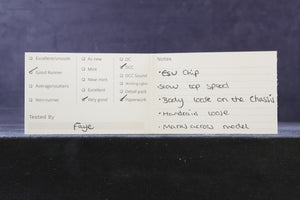 Excellent/smooth
Good Runner
Average/outters
Non-runner
As new
Mint
Near mint
Excellent
Very good
DC
DCC
DCC Sound
Working lights
Detail pack
Paperwork
Tested By
Faye
Notes
• ESU Chip
Slow top speed
• Body loose on the Chassis
• Handrail loose
• Marks across model